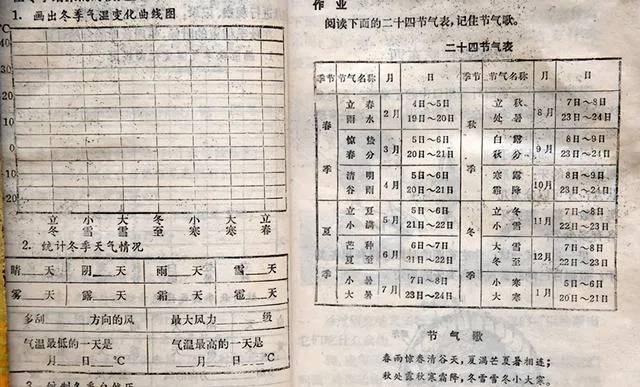 1. 画出冬季气温变化曲线图
℃
40
30
20
10
0
10
20
立冬 小雪 大雪 冬至 小寒 大寒 立春
2. 统计冬季天气情况
晴__天 阴__天 雨__天 雪__天
雾__天 露__天 霜__天 雹__天
多刮____方向的风 最大风力____级
气温最低的一天是 气温最高的一天是
__月__日__℃ __月__日__℃
作业
阅读下面的二十四节气表，记住节气歌。
二十四节气表
季节 节气名称 月 日 季节 节气名称 月 日
春季 立春 2月 4日～5日 秋季 立秋 8月 7日～8日
雨水 19日～20日 处暑 23日～24日
惊蛰 3月 5日～6日 白露 9月 8日～9日
春分 20日～21日 秋分 23日～24日
清明 4月 5日～6日 寒露 10月 8日～9日
谷雨 20日～21日 霜降 23日～24日
夏季 立夏 5月 5日～6日 冬季 立冬 11月 7日～8日
小满 21日～22日 小雪 22日～23日
芒种 6月 6日～7日 大雪 12月 7日～8日
夏至 21日～22日 冬至 22日～23日
小暑 7月 7日～8日 小寒 1月 5日～6日
大暑 23日～24日 大寒 20日～21日
节气歌
春雨惊春清谷天，夏满芒夏暑相连；
秋处露秋寒霜降，冬雪雪冬小大寒。